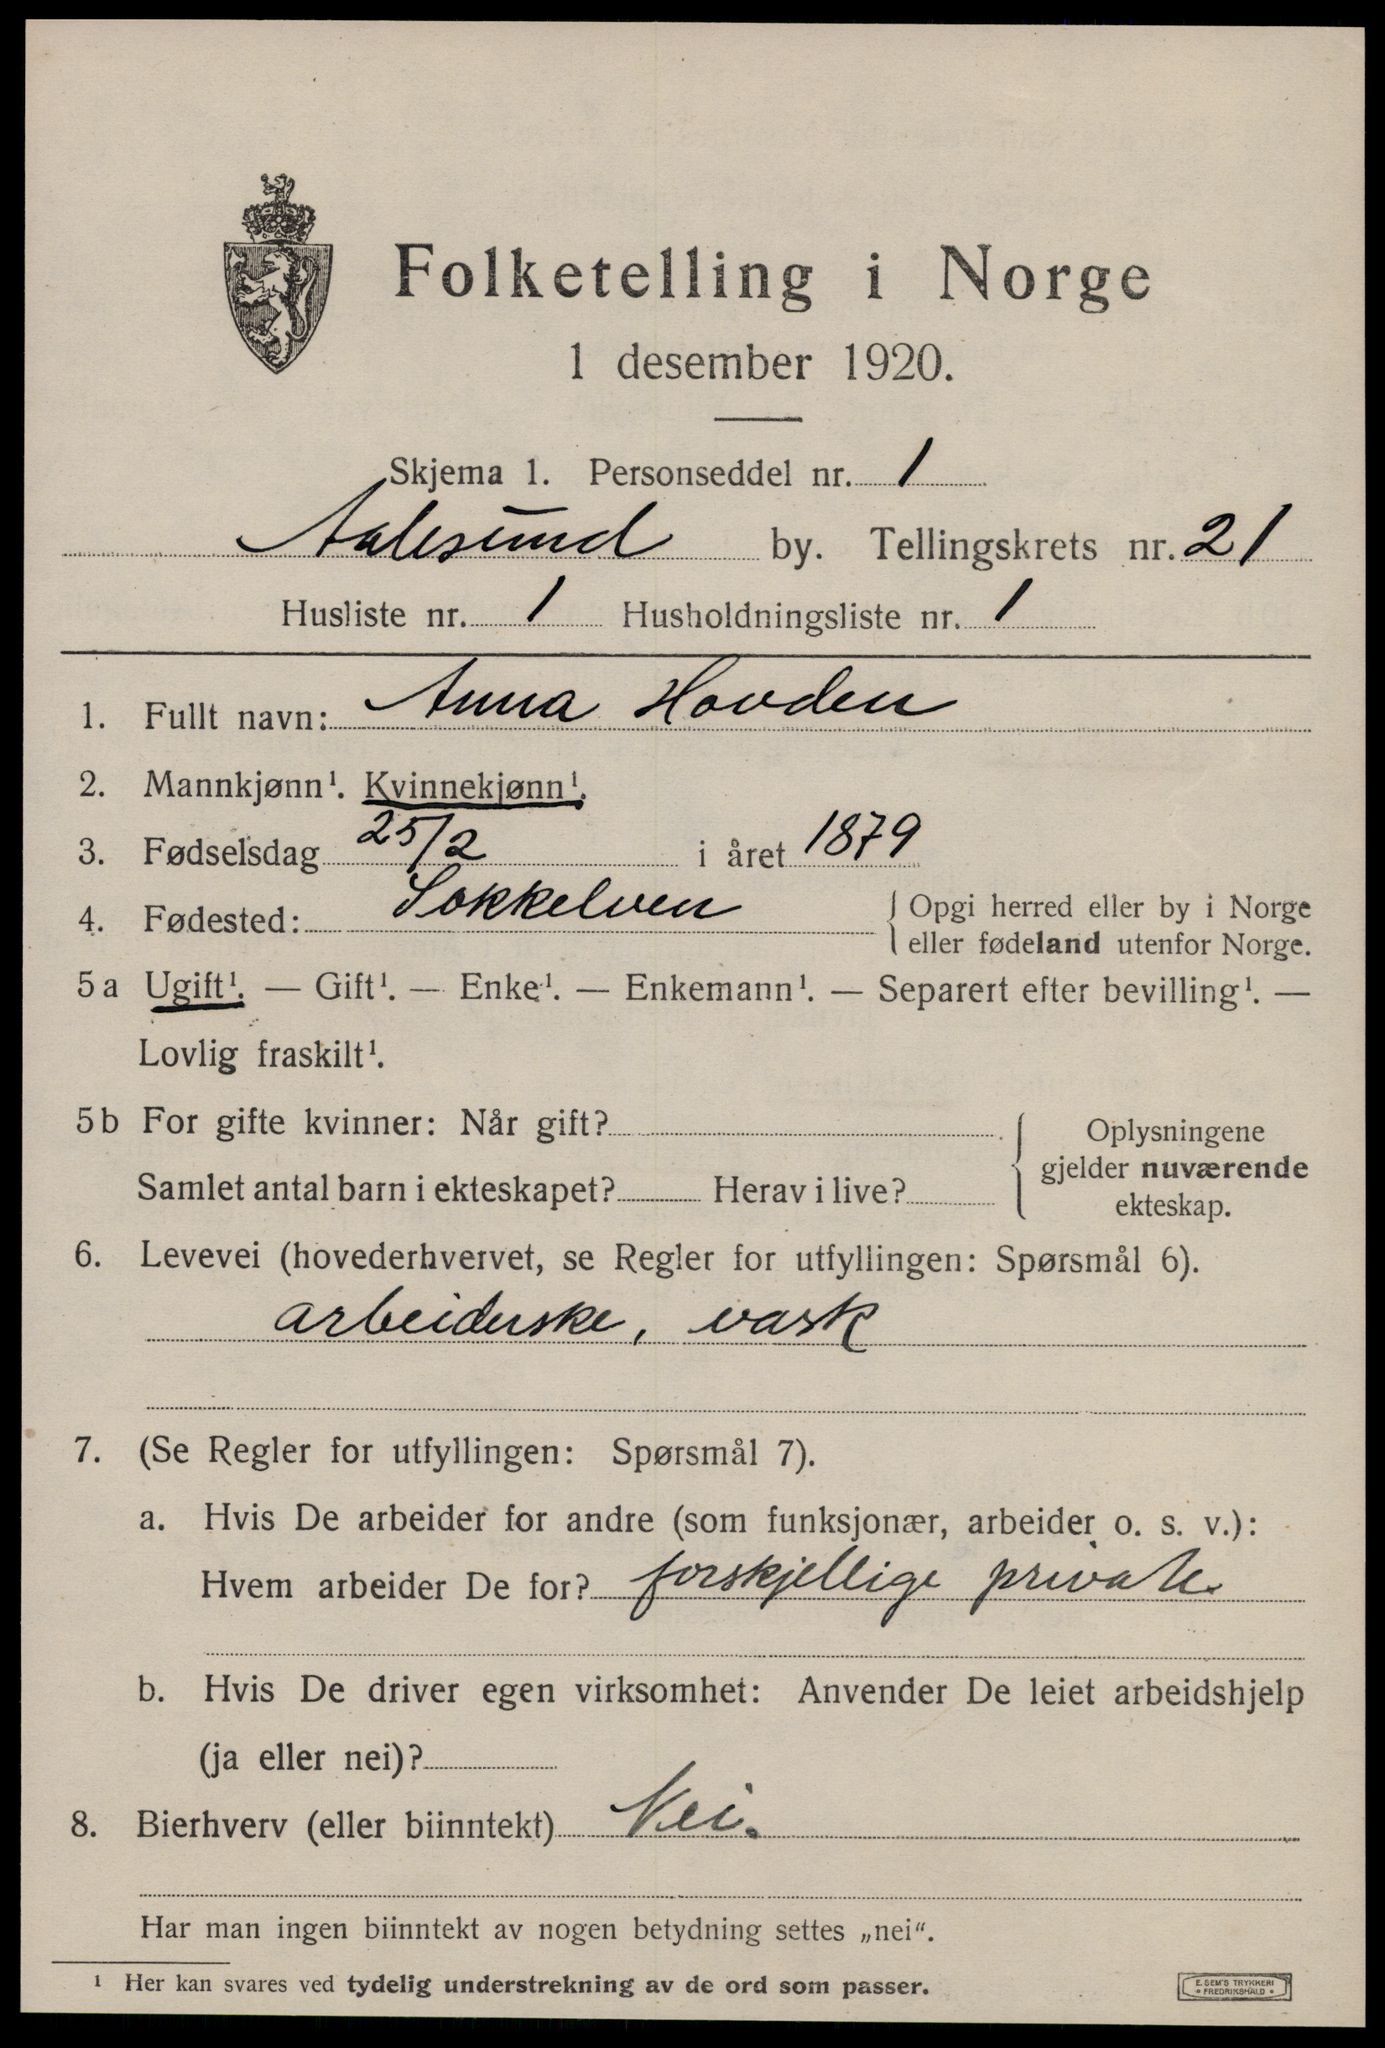 Folketelling i Norge
1 desember 1920.
Skjema 1. Personseddel nr. 1
Aalesund by. Tellingskrets nr. 21
Husliste nr. 1 Husholdningsliste nr. 1
1. Fullt navn: Anna Hovden
2. Mannkjønn¹. Kvinnekjønn¹.
3. Fødselsdag 25/2 i året 1879
4. Fødested: Søkkelven { Opgi herred eller by i Norge
eller fødeland utenfor Norge.
5a Ugift¹. — Gift¹. — Enke¹. — Enkemann¹. — Separert efter bevilling¹. —
Lovlig fraskilt¹.
5b For gifte kvinner: Når gift?
Samlet antal barn i ekteskapet? Herav i live?
{ Oplysningene
gjelder nuværende
ekteskap.
6. Levevei (hovederhvervet, se Regler for utfyllingen: Spørsmål 6).
arbeiderske, vask
7. (Se Regler for utfyllingen: Spørsmål 7).
a. Hvis De arbeider for andre (som funksjonær, arbeider o. s. v.):
Hvem arbeider De for? forskjellige private.
b. Hvis De driver egen virksomhet: Anvender De leiet arbeidshjelp
(ja eller nei)?
8. Bierhverv (eller biinntekt) Nei.
Har man ingen biinntekt av nogen betydning settes „nei“.
¹ Her kan svares ved tydelig understrekning av de ord som passer.
E. SEM'S TRYKKERI
• FREDRIKSHALD •